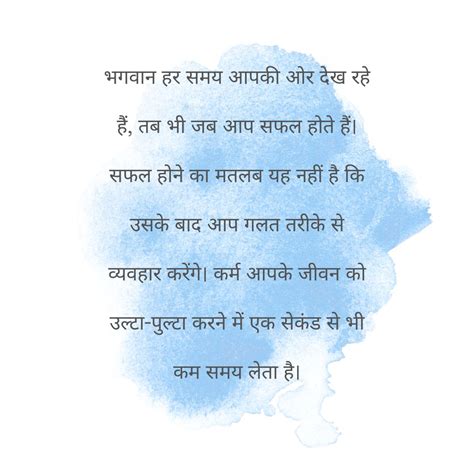 भगवान हर समय आपकी ओर देख रहे
हैं, तब भी जब आप सफल होते हैं।
सफल होने का मतलब यह नहीं है कि
उसके बाद आप गलत तरीके से
व्यवहार करेंगे। कर्म आपके जीवन को
उल्टा-पुल्टा करने में एक सेकंड से भी
कम समय लेता है।